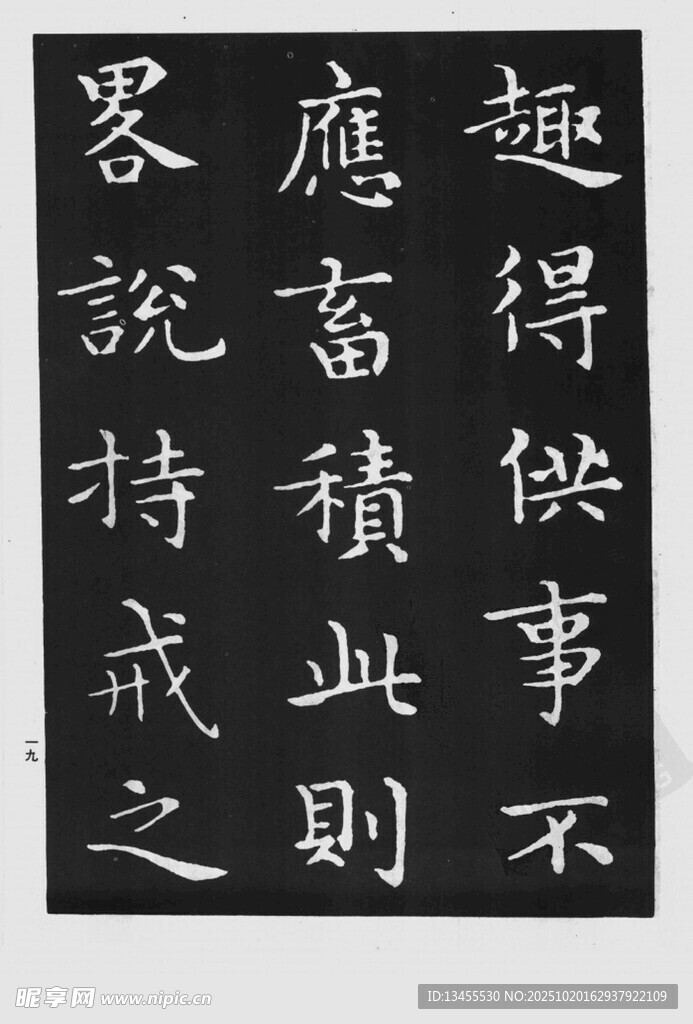 趣得供事不
應畜積此則
畧說持戒之
一九
昵享网 www.nipic.cn
ID:13455530 NO:20251020162937922109